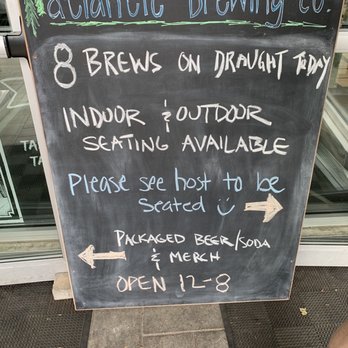 atlantic brewing co.
8 BREWS ON DRAUGHT TODAY
INDOOR & OUTDOOR
SEATING AVAILABLE
Please see host to be
seated
PACKAGED BEER/SODA
& MERCH
OPEN 12-8